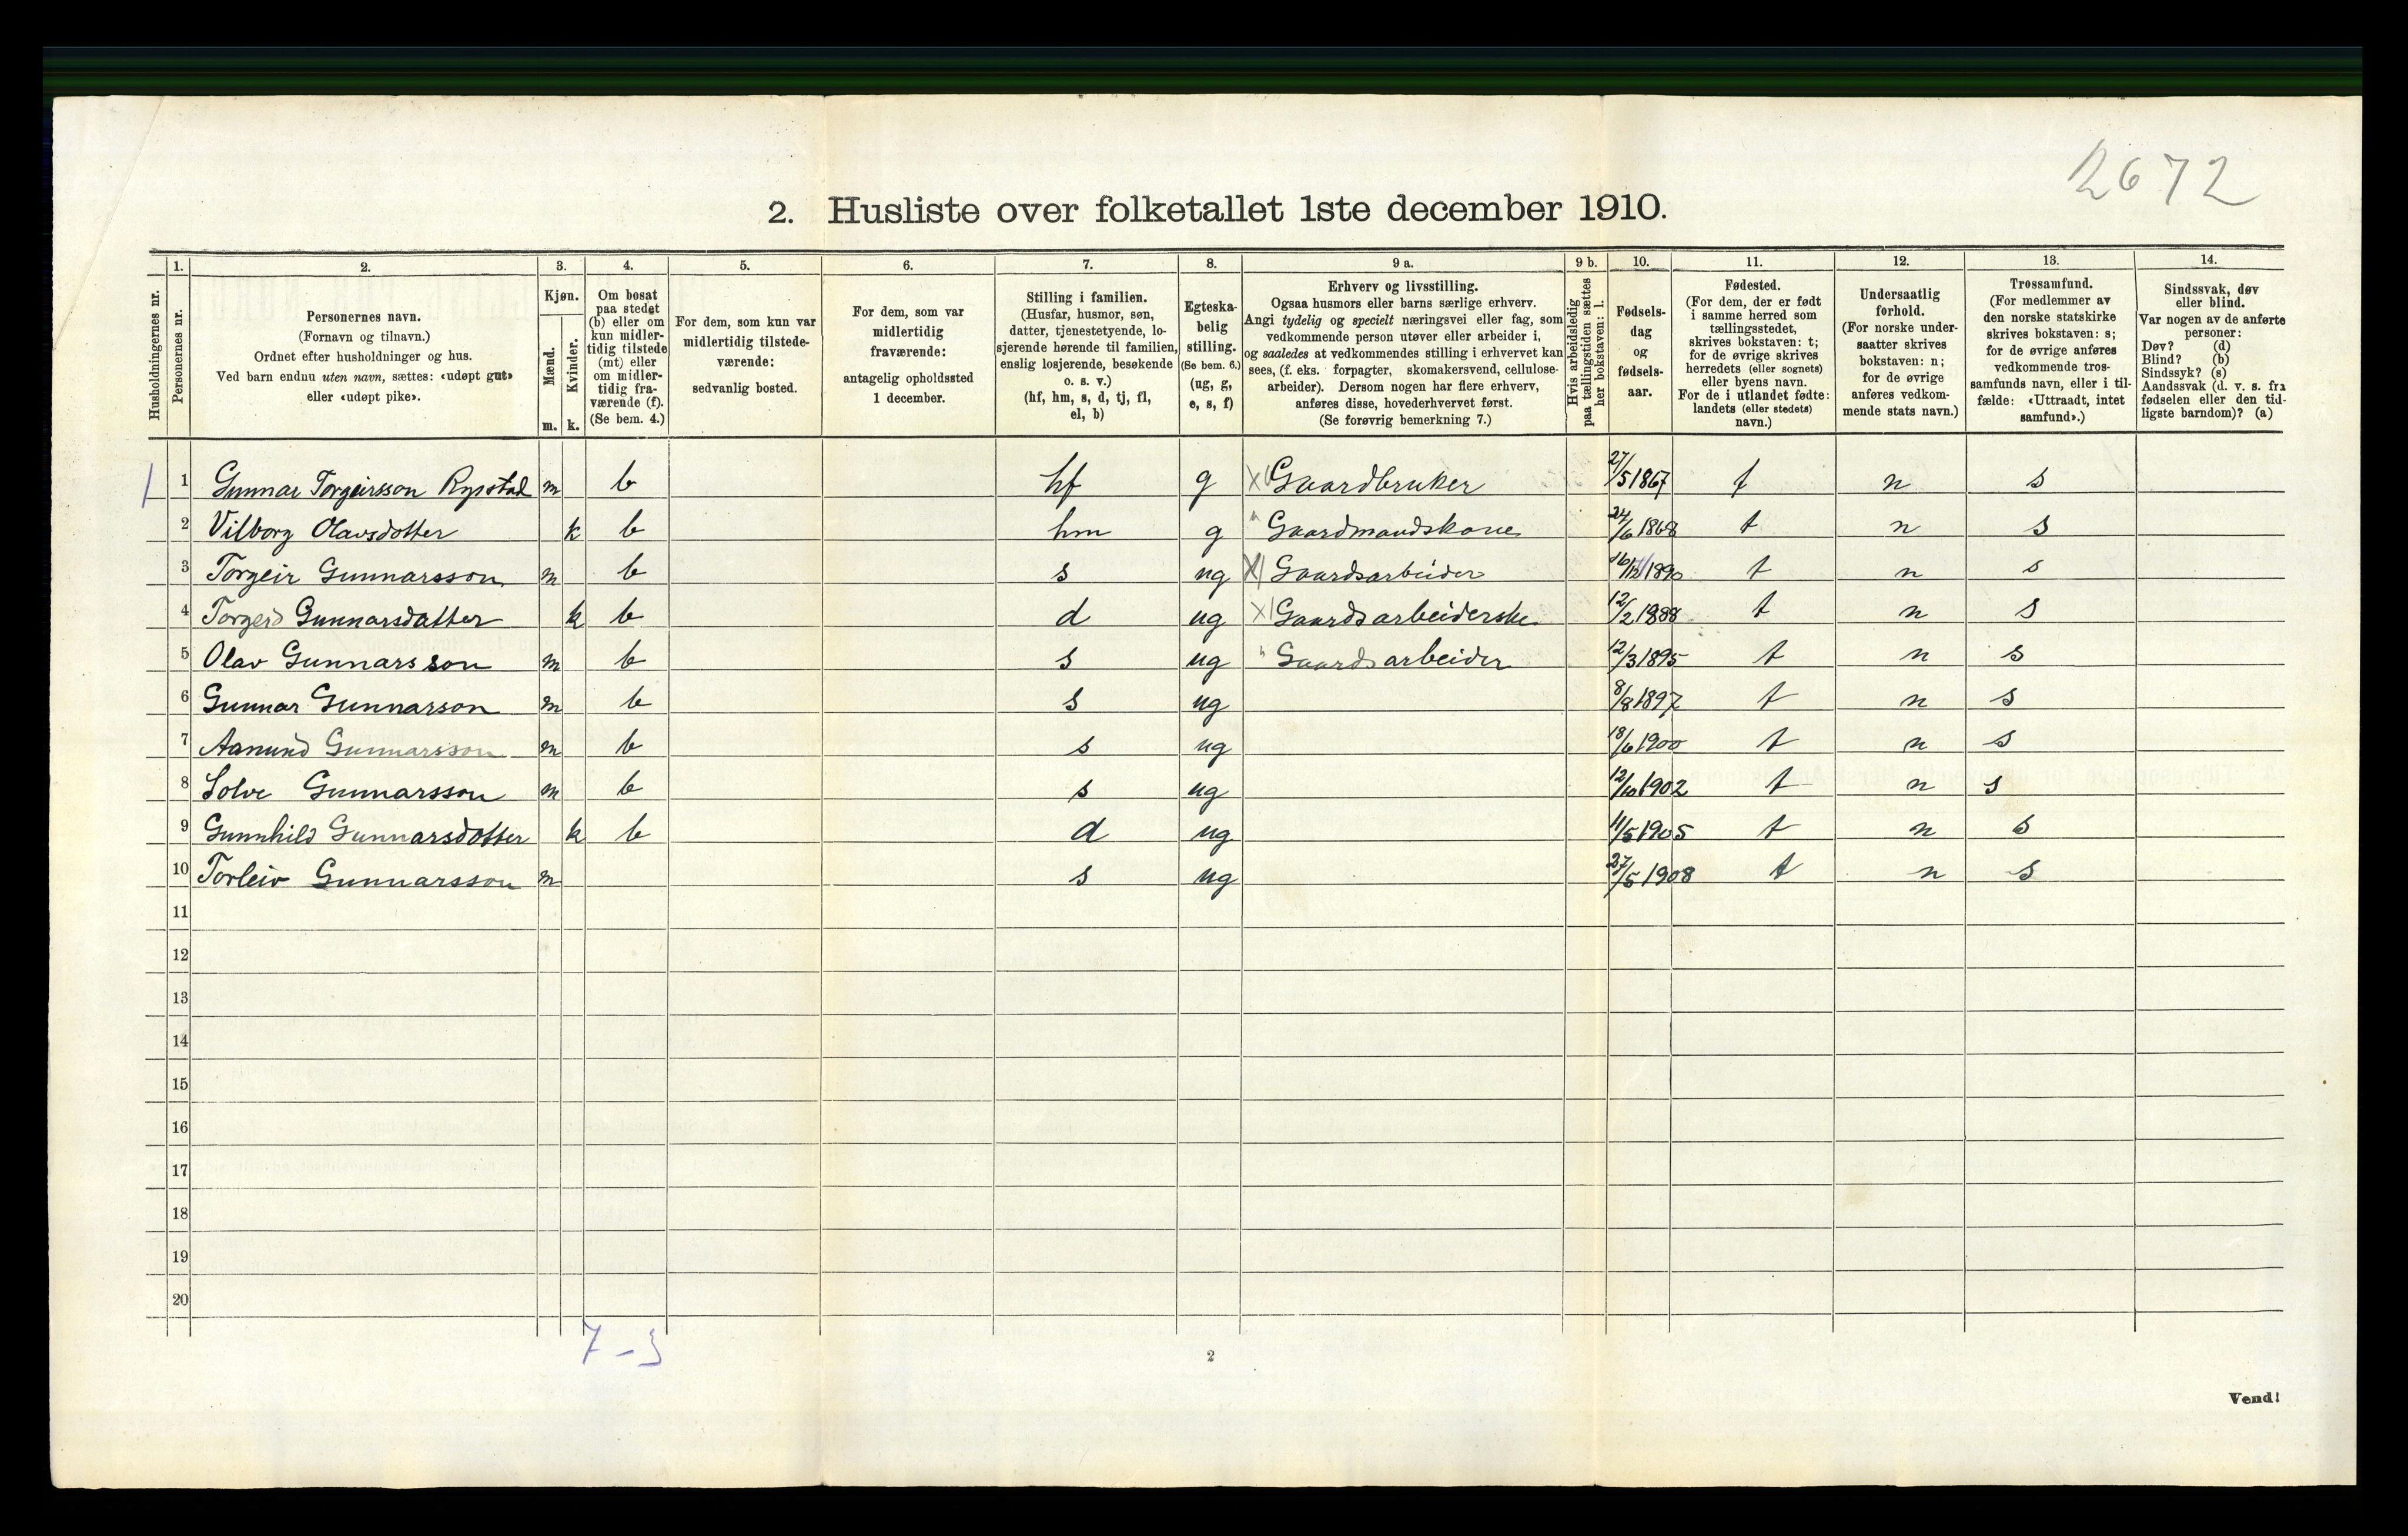 2672
2. Husliste over folketallet 1ste december 1910.
Husholdningernes nr.
1. Personernes nr.
2. Personernes navn.
(Fornavn og tilnavn.)
Ordnet efter husholdninger og hus.
Ved barn endnu uten navn, sættes: «udøpt gut»
eller «udøpt pike».
3. Kjøn.
Mænd. m.
Kvinder. k.
4. Om bosat
paa stedet
(b) eller om
kun midler-
tidig tilstede
(mt) eller
om midler-
tidig fra-
værende (f).
(Se bem. 4.)
5. For dem, som kun var
midlertidig tilstede-
værende:
sedvanlig bosted.
6. For dem, som var
midlertidig
fraværende:
antagelig opholdssted
1 december.
7. Stilling i familien.
(Husfar, husmor, søn,
datter, tjenestetyende, lo-
sjerende hørende til familien,
enslig losjerende, besøkende
o. s. v.)
(hf, hm, s, d, tj, fl,
el, b)
8. Egteska-
belig
stilling.
(Se bem. 6.)
(ug, g,
e, s, f)
9 a. Erhverv og livsstilling.
Ogsaa husmors eller barns særlige erhverv.
Angi tydelig og specielt næringsvei eller fag, som
vedkommende person utøver eller arbeider i,
og saaledes at vedkommendes stilling i erhvervet kan
sees, (f. eks. forpagter, skomakersvend, cellulose-
arbeider). Dersom nogen har flere erhverv,
anføres disse, hovederhvervet først.
(Se forøvrig bemerkning 7.)
9 b. Hvis arbeidsledig
paa tællingstiden sættes
her bokstaven: l.
10. Fødsels-
dag
og
fødsels-
aar.
11. Fødested.
(For dem, der er født
i samme herred som
tællingsstedet,
skrives bokstaven: t;
for de øvrige skrives
herredets (eller sognets)
eller byens navn.
For de i utlandet fødte:
landets (eller stedets)
navn.)
12. Undersaatlig
forhold.
(For norske under-
saatter skrives
bokstaven: n;
for de øvrige
anføres vedkom-
mende stats navn.)
13. Trossamfund.
(For medlemmer av
den norske statskirke
skrives bokstaven: s;
for de øvrige anføres
vedkommende tros-
samfunds navn, eller i til-
fælde: «Uttraadt, intet
samfund».)
14. Sindssvak, døv
eller blind.
Var nogen av de anførte
personer:
Døv? (d)
Blind? (b)
Sindssyk? (s)
Aandssvak (d. v. s. fra
fødselen eller den tid-
ligste barndom)? (a)
1 1 Gunnar Torgeirsson Rysstad m b hf g X Gaardbruker 27/5 1867 t n s
2 Vilborg Olavsdotter k b hm g " Gaardmandskone 24/6 1868 t n s
3 Torgeir Gunnarsson m b s ug X Gaardsarbeider 1890 t n s
4 Torgerd Gunnarsdatter k b d ug X Gaardsarbeiderske 12/2 1888 t n s
5 Olav Gunnarsson m b s ug " Gaardsarbeider 12/3 1895 t n s
6 Gunnar Gunnarson m b s ug 8/8 1897 t n s
7 Aanund Gunnarsson m b s ug 18/6 1900 t n s
8 Solve Gunnarsson m b s ug 12/10 1902 t n s
9 Gunnhild Gunnarsdotter k b d ug 11/5 1905 t n s
10 Torleiv Gunnarsson m s ug 27/5 1908 t n s
11
12
13
14
15
16
17
18
19
20
7 - 3
2
Vend!